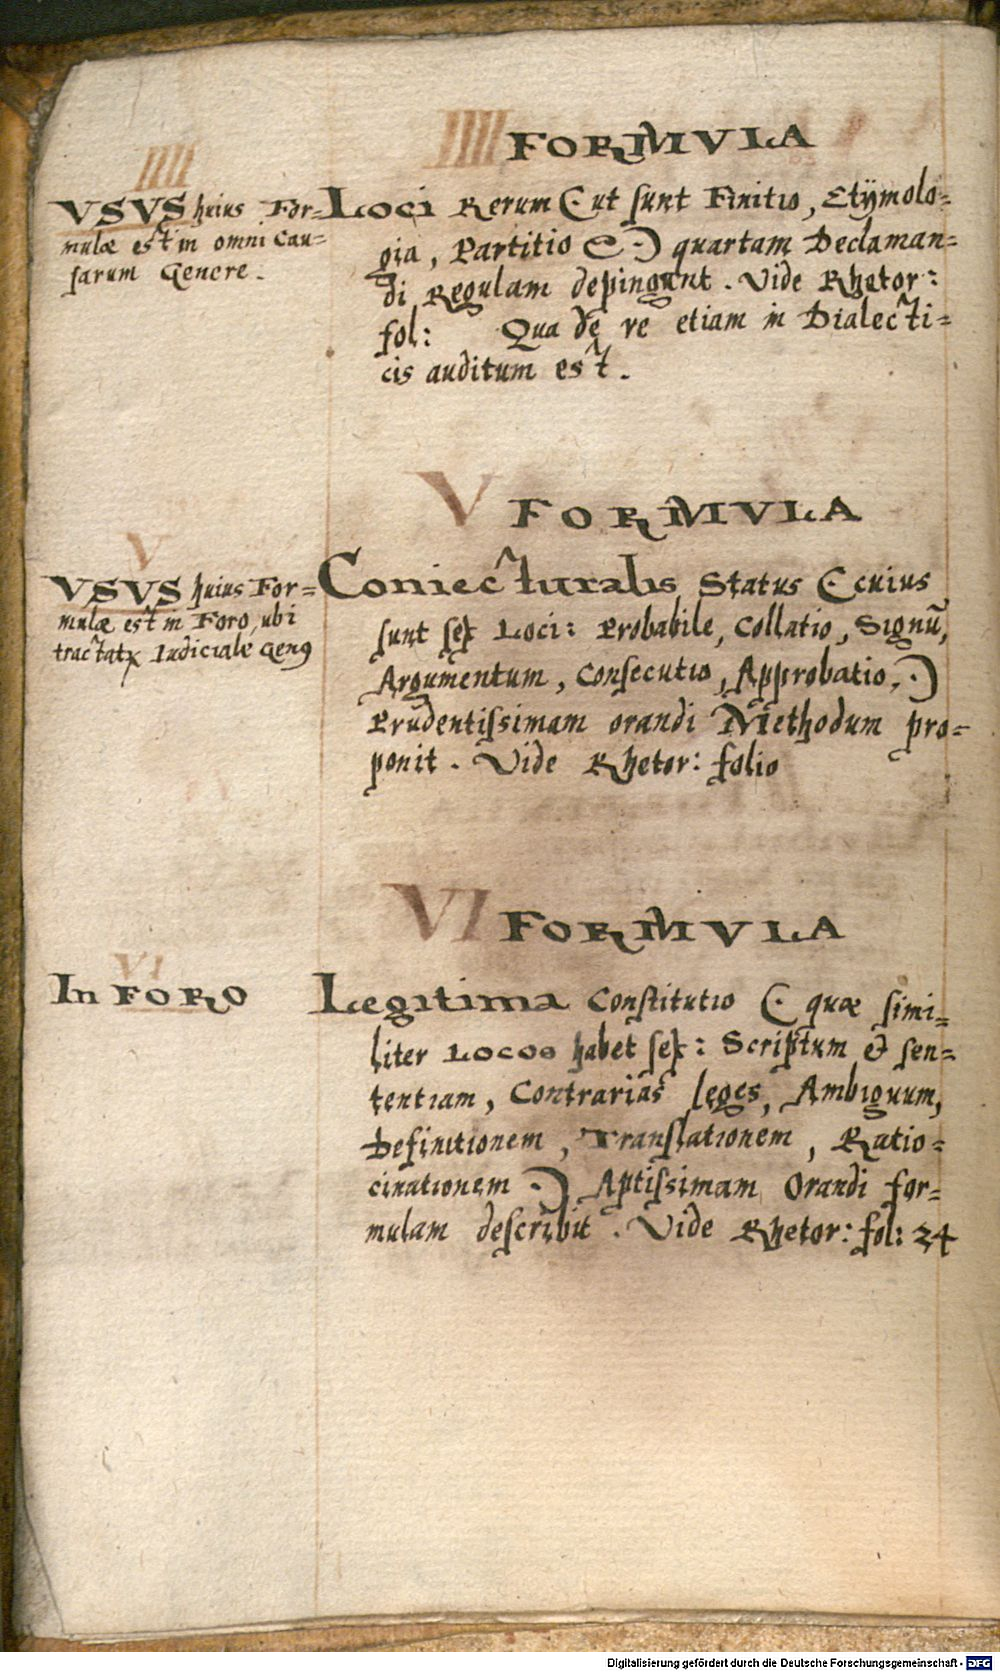 IIII FORMVLA
IIII
VSVS huius For=
mulæ est in omni Cau=
sarum Genere.
Loci Rerum (· ut sunt Finitio, Etÿmolo=
gia, Partitio &c ·) quartam Declaman=
di Regulam depingunt. Vide Rhetor:
fol: Qua de re etiam in Dialecti=
cis auditum est.
V FORMVLA
V
VSVS huius For=
mulæ est in Foro, ubi
tractatꝝ Iudiciale Genꝰ
Coniecturalis Status (· cuius
sunt sex Loci: Probabile, Collatio, Signũ,
Argumentum, Consecutio, Approbatio, ·)
Prudentissimam orandi Methodum pro=
ponit. Vide Rhetor: folio
VI FORMVLA
VI
In FORO
Legitima Constitutio (· quæ simi=
liter Locos habet sex: Scriptum & sen=
tentiam, Contrarias leges, Ambiguum,
Definitionem, Translationem, Ratio=
cinationem ·) Aptissimam Orandi for=
mulam describit. Vide Rhetor: fol: 24
Digitalisierung gefördert durch die Deutsche Forschungsgemeinschaft - DFG